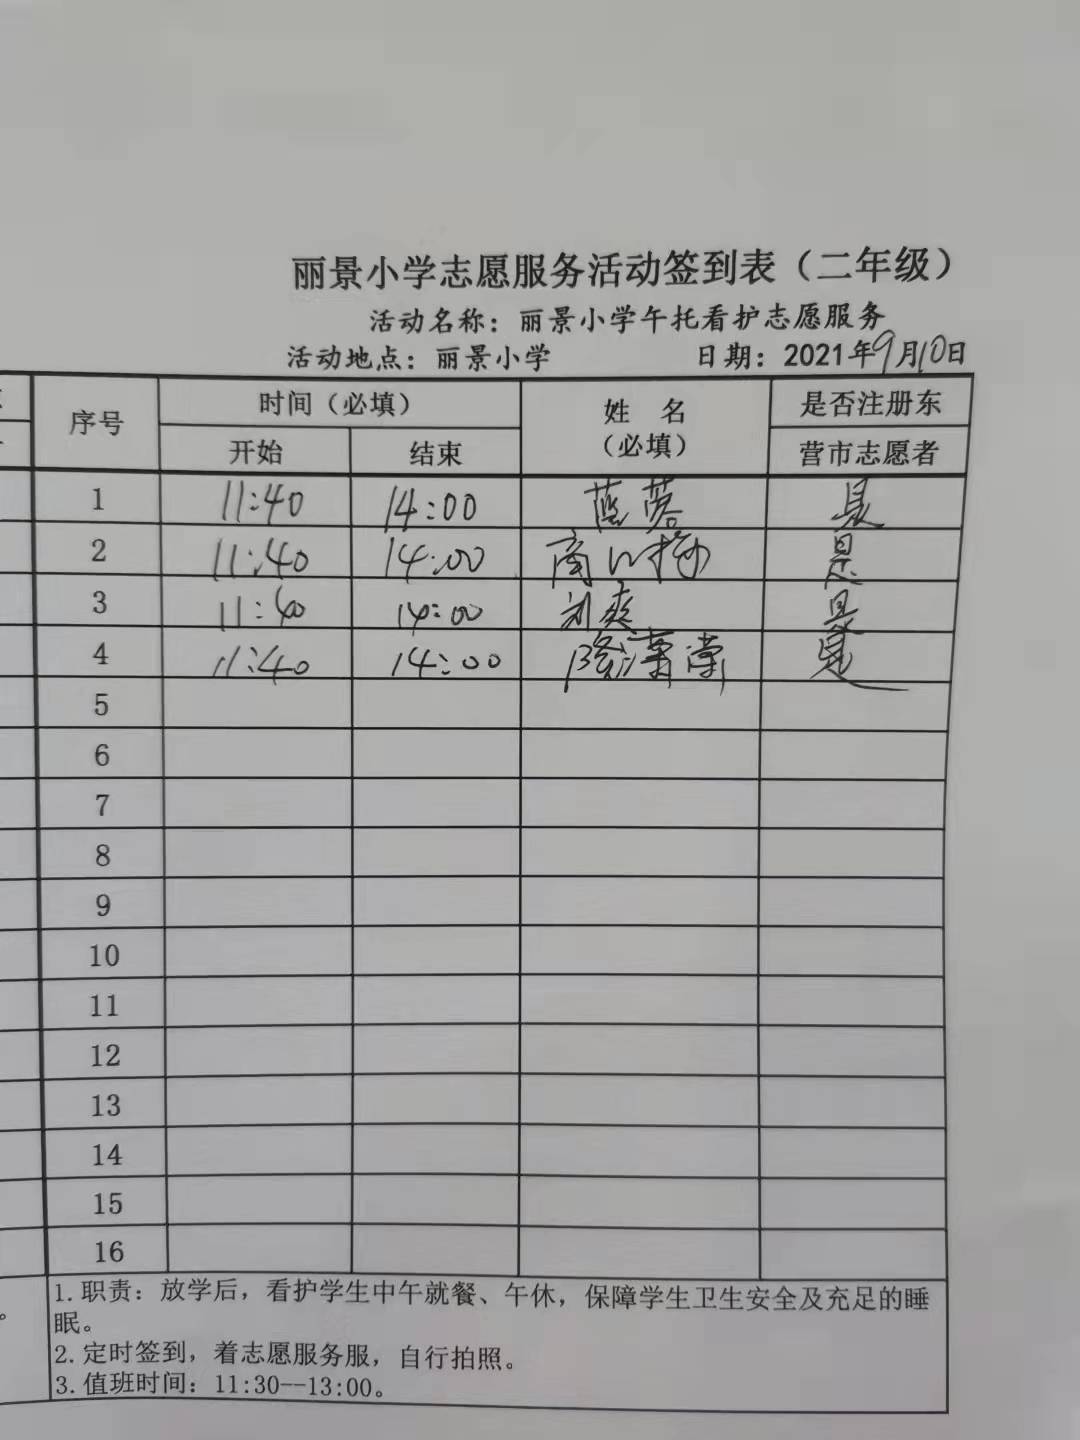 丽景小学志愿服务活动签到表（二年级）
活动名称：丽景小学午托看护志愿服务
活动地点：丽景小学 日期：2021年9月10日
序号 时间（必填） 姓 名 是否注册东
开始 结束 （必填） 营市志愿者
1 11:40 14:00 是
2 11:40 14:00 是
3 11:40 14:00 刘爽 是
4 11:40 14:00 是
5
6
7
8
9
10
11
12
13
14
15
16
1.职责：放学后，看护学生中午就餐、午休，保障学生卫生安全及充足的睡
眠。
2.定时签到，着志愿服务服，自行拍照。
3.值班时间：11:30--13:00。